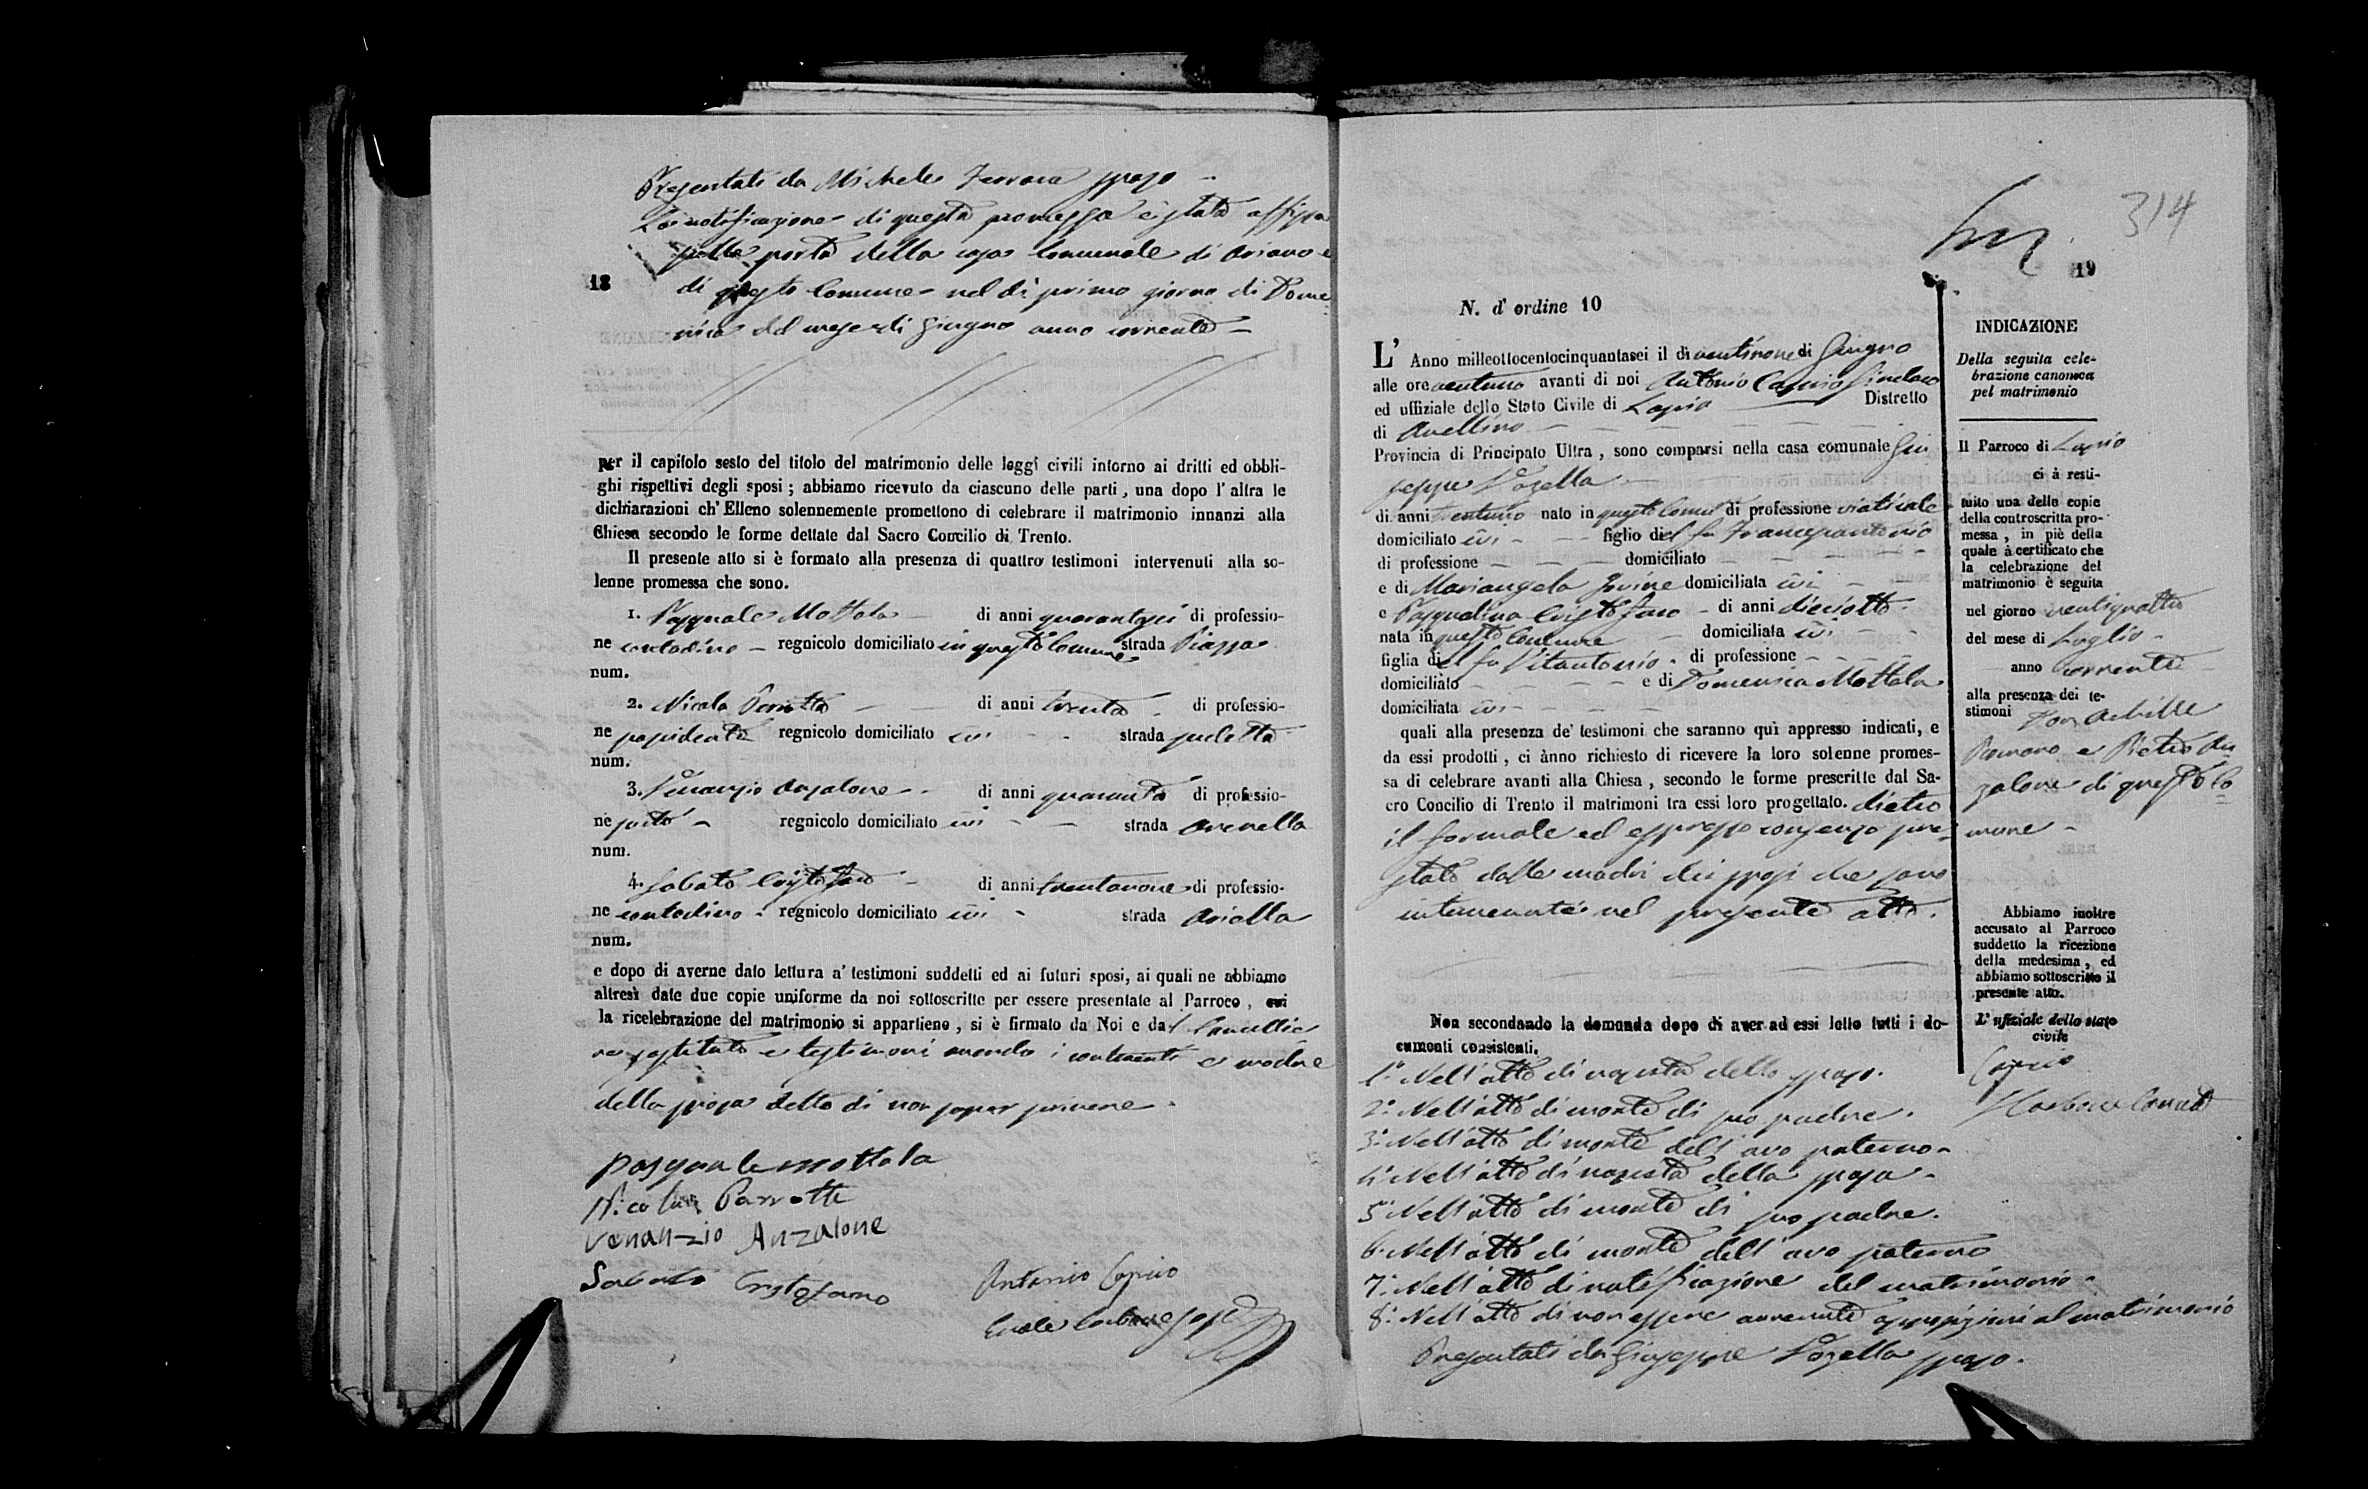 Presentati da Michele Ferrara sposo
La notificazione di questa promessa è stata affissa
sulla porta della casa Comunale di Ariano e
18
di questo Comune nel dì primo giorno di Dome
nica del mese di Giugno anno corrente
per il capitolo sesto del titolo del matrimonio delle leggi civili intorno ai dritti ed obbli-
ghi rispettivi degli sposi ; abbiamo ricevuto da ciascuno delle parti , una dopo l' altra le
dichiarazioni ch' Elleno solennemente promettono di celebrare il matrimonio innanzi alla
Chiesa secondo le forme dettate dal Sacro Concilio di Trento.
Il presente atto si è formato alla presenza di quattro testimoni intervenuti alla so-
lenne promessa che sono.
1. Pasquale Mottola di anni quarantasei di professio-
ne contadino regnicolo domiciliato in questo Comune strada Piazza
num.
2. Nicola Parrotta di anni trenta di professio-
ne possidente regnicolo domiciliato ivi strada
num.
3. Venanzio Anzalone di anni quaranta di professio-
ne sarto regnicolo domiciliato ivi strada Arenella
num.
4. Sabato Cristofaro di anni trentanove di professio-
ne contadino regnicolo domiciliato ivi strada
num.
e dopo di averne dato lettura a' testimoni suddetti ed ai futuri sposi, ai quali ne abbiamo
altresì date due copie uniforme da noi sottoscritte per essere presentate al Parroco , cui
la ricelebrazione del matrimonio si appartiene , si è firmato da Noi e dal Cancellie
re sostituto e testimoni avendo i contraenti e madre
della sposa detto di non saper scrivere
Pasquale mottola
Nicola Parrotta
Venanzio Anzalone
Sabato Cristofano
Antonio Caprio
Carbone
314
19
N. d' ordine 10
L' Anno milleottocentocinquantasei il dì ventinove di Giugno
alle ore ventuno avanti di noi Antonio Caprio Sindaco
ed uffiziale dello Stato Civile di Lapio Distretto
di Avellino
Provincia di Principato Ultra , sono comparsi nella casa comunale Giu
seppe Vozella
di anni ventuno nato in questo Comune di professione viaticale
domiciliato ivi figlio del fu Francescantonio
di professione domiciliato
e di Mariangela Iovine domiciliata ivi
e Pasqualina Cristofaro di anni diciotto
nata in questo Comune domiciliata ivi
figlia del fu Vitantonio di professione
domiciliato e di Domenica Mottola
domiciliata ivi
quali alla presenza de' testimoni che saranno quì appresso indicati, e
da essi prodotti , ci ànno richiesto di ricevere la loro solenne promes-
sa di celebrare avanti alla Chiesa , secondo le forme prescritte dal Sa-
cro Concilio di Trento il matrimoni tra essi loro progettato. dietro
il formale ed espresso consenso pre-
stato dalle madri dei sposi che sono
intervenute nel presente atto.
Non secondando la domanda dopo di aver ad essi letto tutti i do-
cumenti consistenti.
1.º Nell'atto di nascita dello sposo.
2.º Nell'atto di morte di suo padre.
3.º Nell'atto di morte dell'avo paterno
4.º Nell'atto di nascita della sposa
5.º Nell'atto di morte di suo padre.
6.º Nell'atto di morte dell'avo paterno
7.º Nell'atto di notificazione del matrimonio
8.º Nell'atto di non essere avvenute opposizioni al matrimonio
Presentati da Giuseppe Vozella sposo.
INDICAZIONE
Della seguita cele-
brazione canonica
pel matrimonio
Il Parroco di Lapio
ci à resti-
tuito una delle copie
della controscritta pro-
messa , in piè della
quale à certificato che
la celebrazione del
matrimonio è seguita
nel giorno ventiquattro
del mese di Luglio
anno corrente
alla presenza dei te-
stimoni Don Achille
Romano e Pietro An
zalone di questo Co
mune
Abbiamo inoltre
accusato al Parroco
suddetto la ricezione
della medesima , ed
abbiamo sottoscritto il
presente atto.
L' ufiziale dello stato
civile
Caprio
Carbone